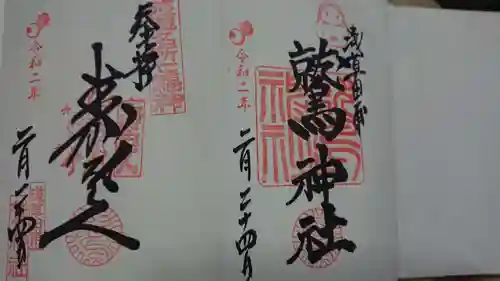 浅草田甫
鷲神社
令和二年
二月二十四日
奉拝
寿老人
令和二年
二月二十四日